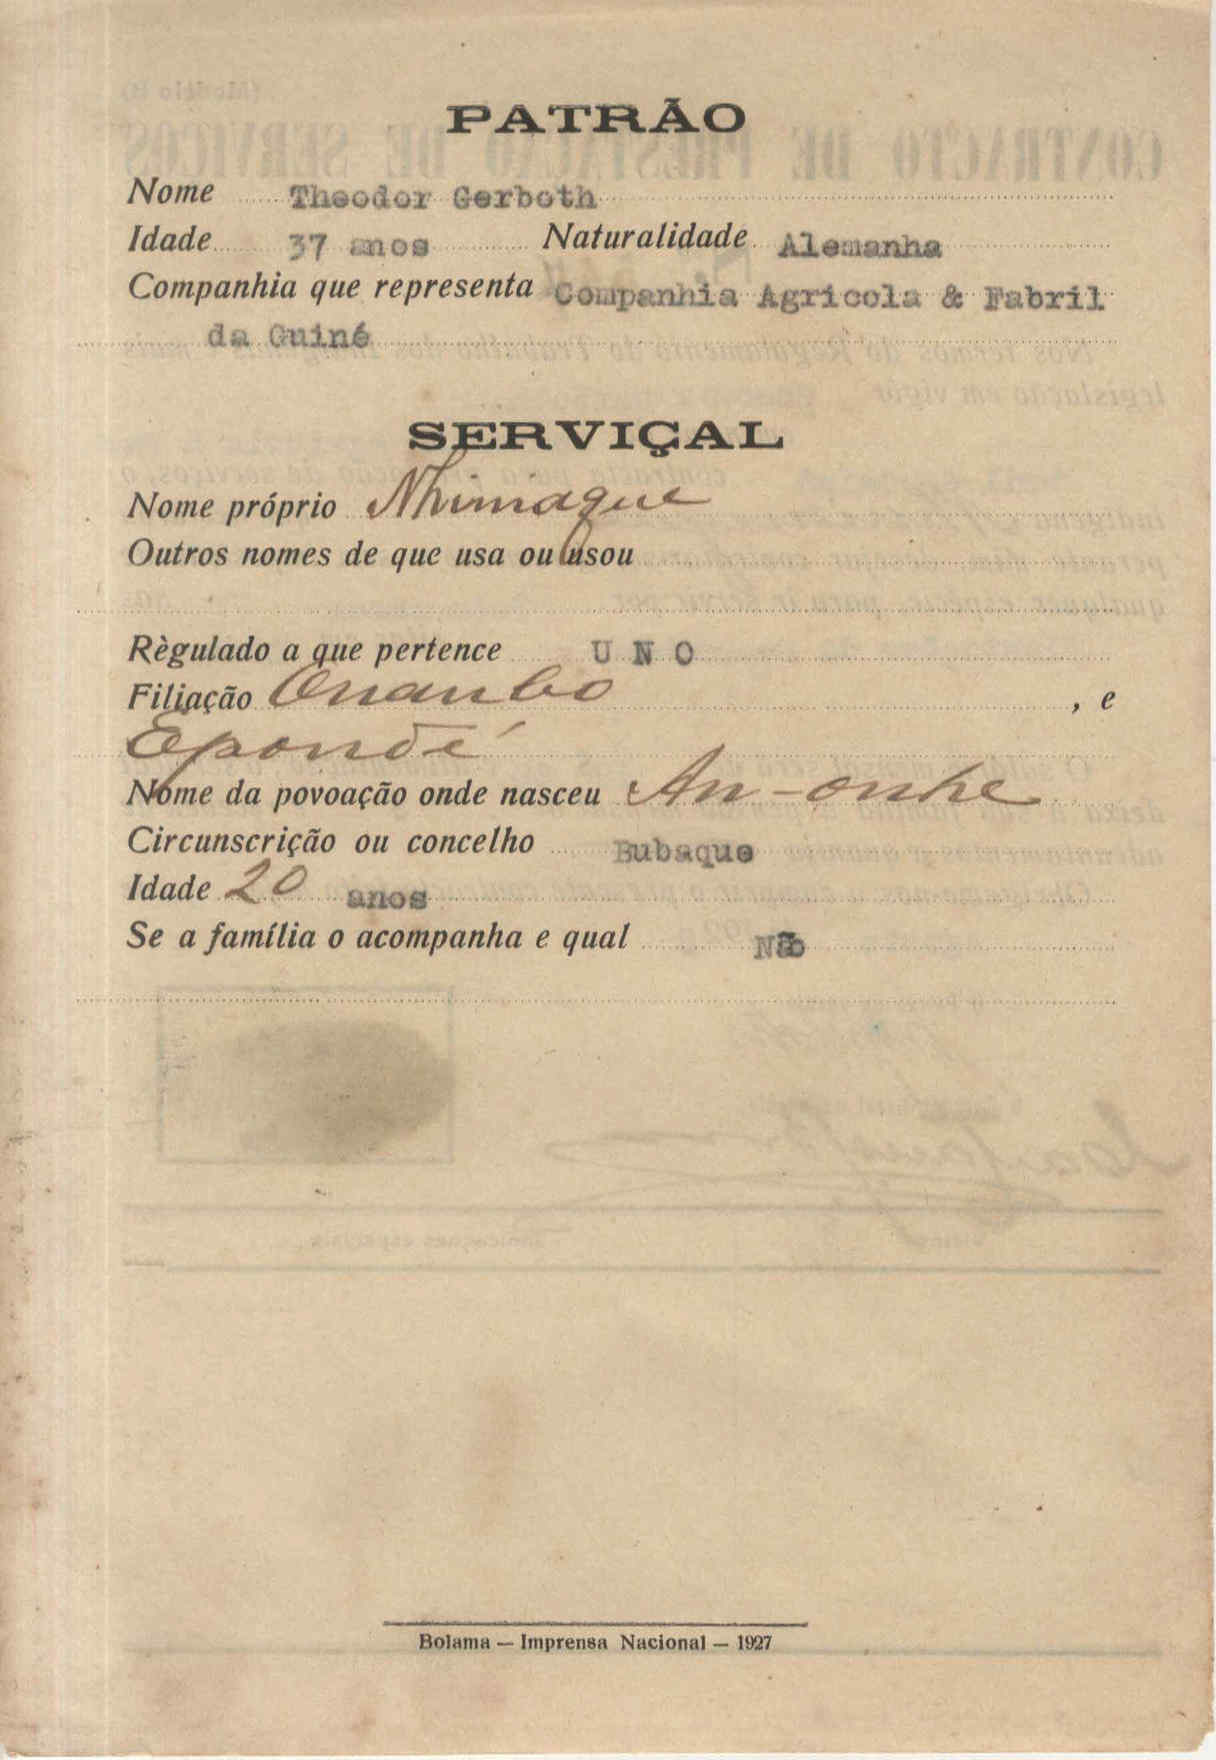 PATRÃO
Nome Theodor Gerboth
Idade 37 anos Naturalidade Alemanha
Companhia que representa Companhia Agricola & Fabril
da Guiné
SERVIÇAL
Nome próprio Nhimaque
Outros nomes de que usa ou usou
Règulado a que pertence UNO
Filiação Onanbo , e
Epondé
Nome da povoação onde nasceu An-onhe
Circunscrição ou concelho Bubaque
Idade 20 anos
Se a família o acompanha e qual Não
Bolama — Imprensa Nacional — 1927